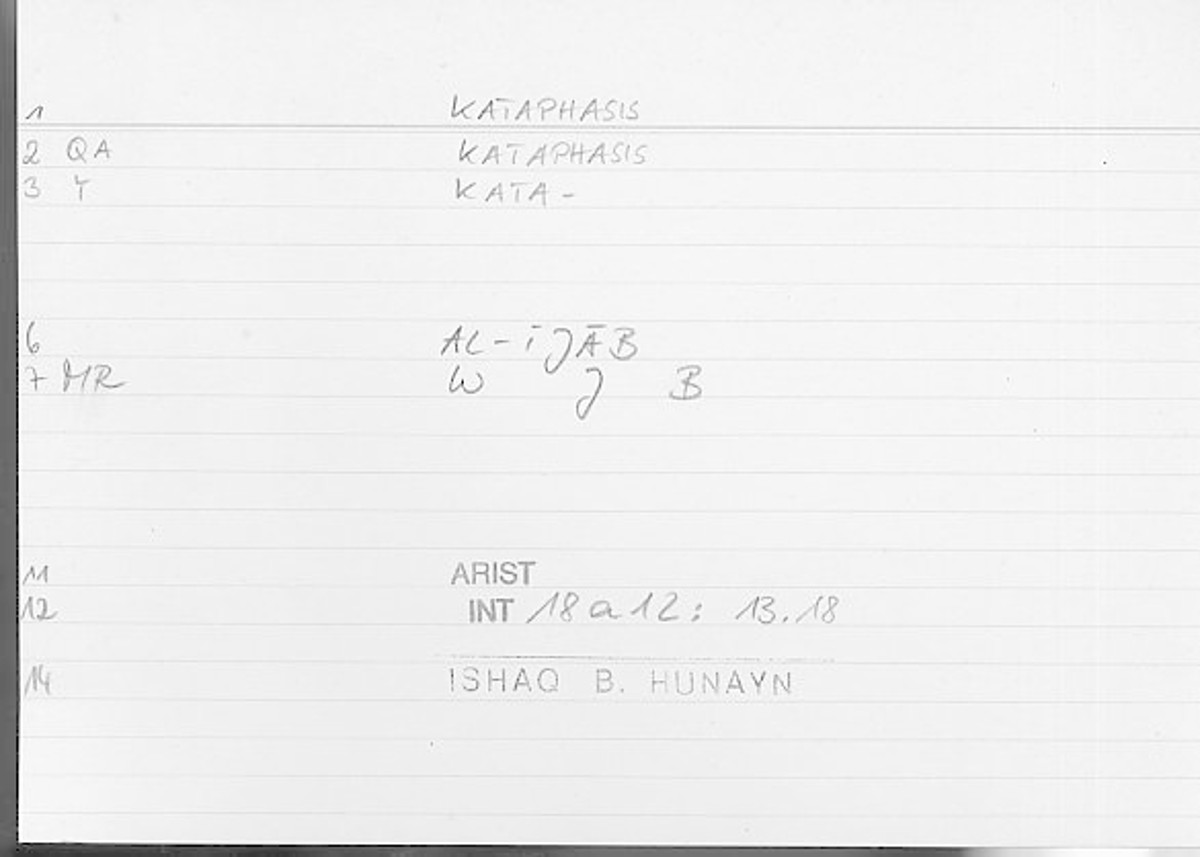 1 KATAPHASIS
2 QA KATAPHASIS
3 Y KATA-
6 AL-ĪJĀB
7 MR W J B
11 ARIST
12 INT 18a12: 13.18
14 ISHAQ B. HUNAYN